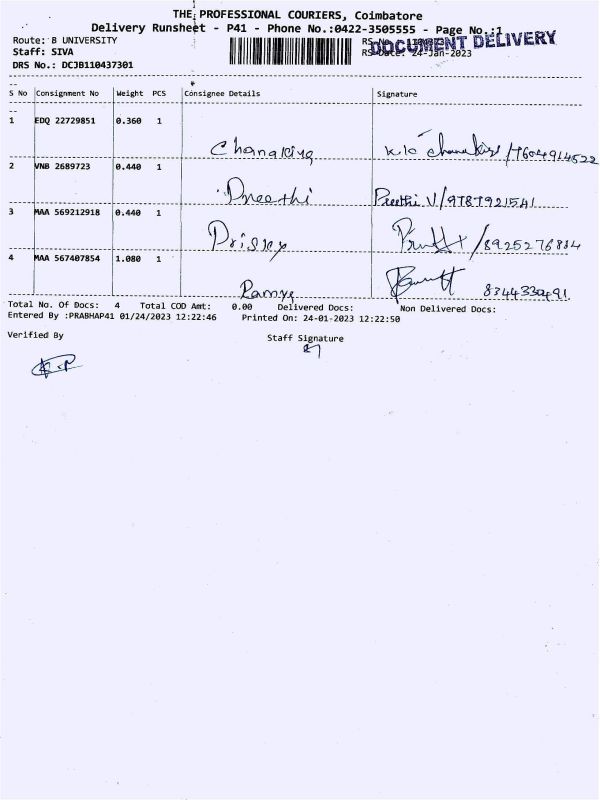 THE PROFESSIONAL COURIERS, Coimbatore
Delivery Runsheet - P41 - Phone No.:0422-3505555 - Page No.:1
Route: B UNIVERSITY
RS No.
DOCUMENT DELIVERY
Staff: SIVA
RS Date: 24-Jan-2023
DRS No.: DCJB110437301
S No Consignment No Weight PCS Consignee Details Signature
1 EDQ 22729851 0.360 1
/7604914522
2 VNB 2689723 0.440 1
Preethi Preethi V/9787921541
3 MAA 569212918 0.440 1
/8925276884
4 MAA 567407854 1.080 1
Ramya 8344330491.
Total No. Of Docs: 4 Total COD Amt: 0.00 Delivered Docs: Non Delivered Docs:
Entered By :PRABHAP41 01/24/2023 12:22:46 Printed On: 24-01-2023 12:22:50
Verified By
Staff Signature